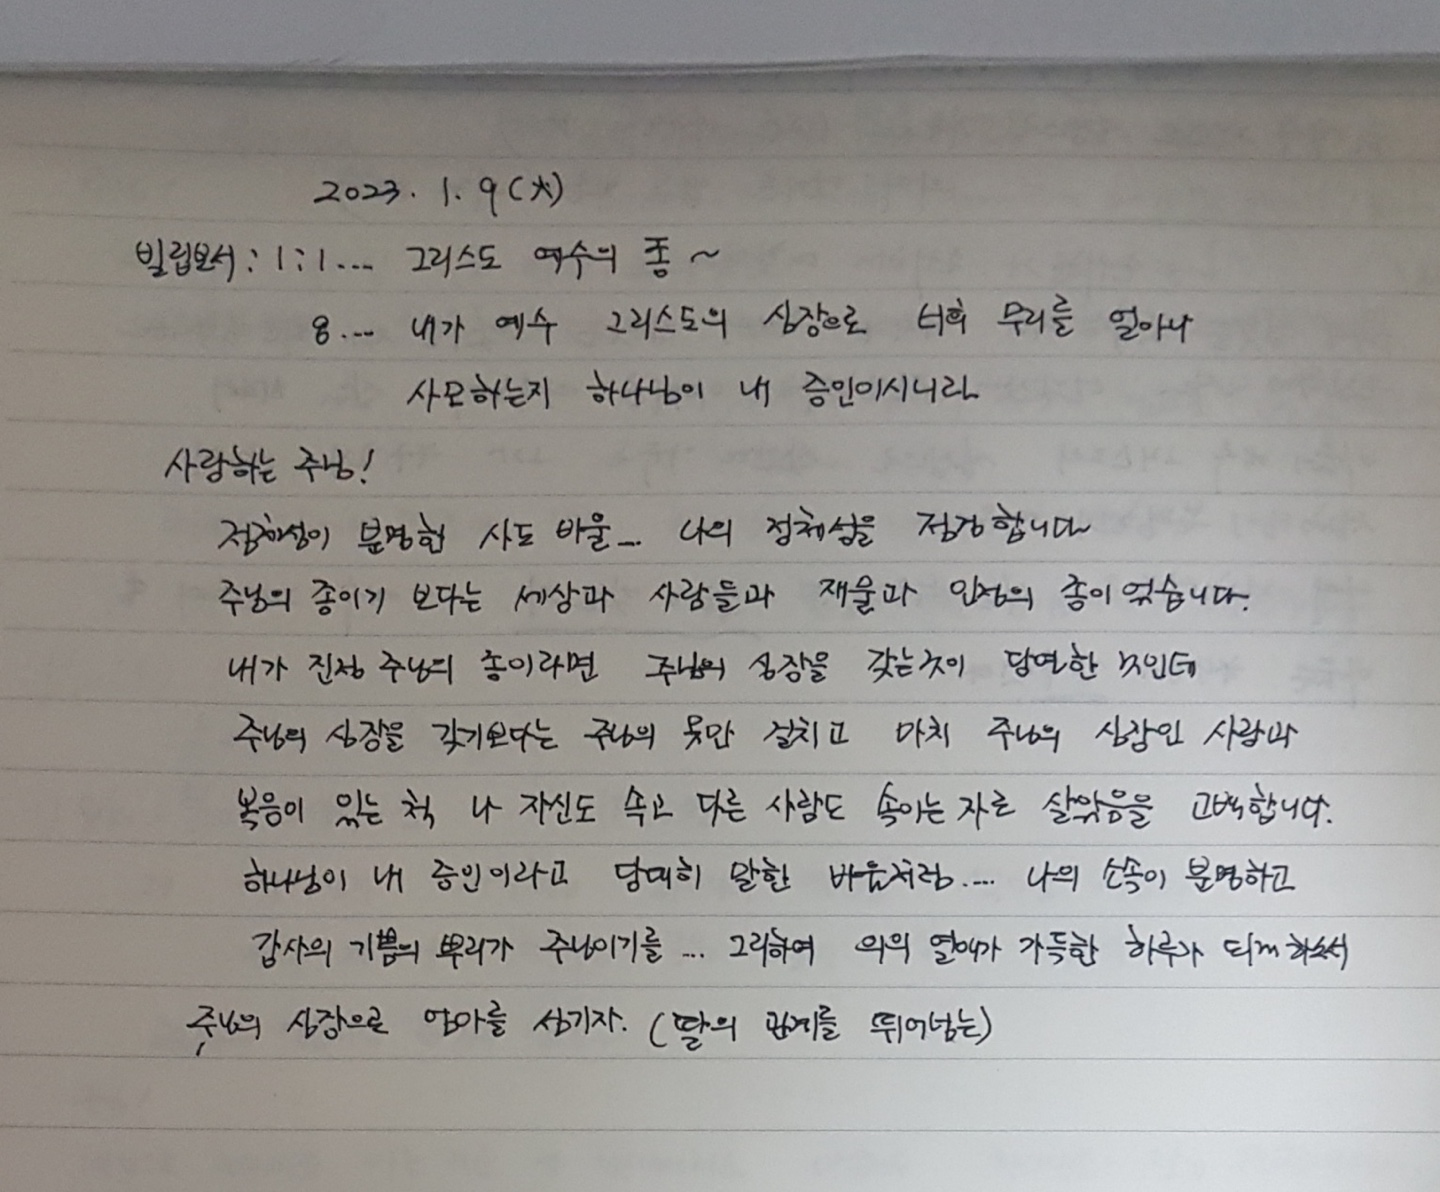 2023. 1. 9(火)
빌립보서: 1:1... 그리스도 예수의 종 ~
8... 내가 예수 그리스도의 심장으로 너희 무리를 얼마나
사모하는지 하나님이 내 증인이시니라
사랑하는 주님!
정체성이 분명한 사도 바울... 나의 정체성을 점검합니다
주님의 종이기 보다는 세상과 사람들과 재물과 인정의 종이었습니다.
내가 진정 주님의 종이라면 주님의 심장을 갖는것이 당연한 것인데
주님의 심장을 갖기보다는 주님의 옷만 걸치고 마치 주님의 심장인 사람과
복음이 있는 척 나 자신도 속고 다른 사람도 속이는 자로 살았음을 고백합니다.
하나님이 내 증인이라고 담대히 말한 바울처럼.... 나의 소속이 분명하고
감사의 기쁨의 뿌리가 주님이기를 ... 그리하여 의의 열매가 가득한 하루가 되게 하소서
주님의 심장으로 엄마를 섬기자. (딸의 관계를 뛰어넘는)